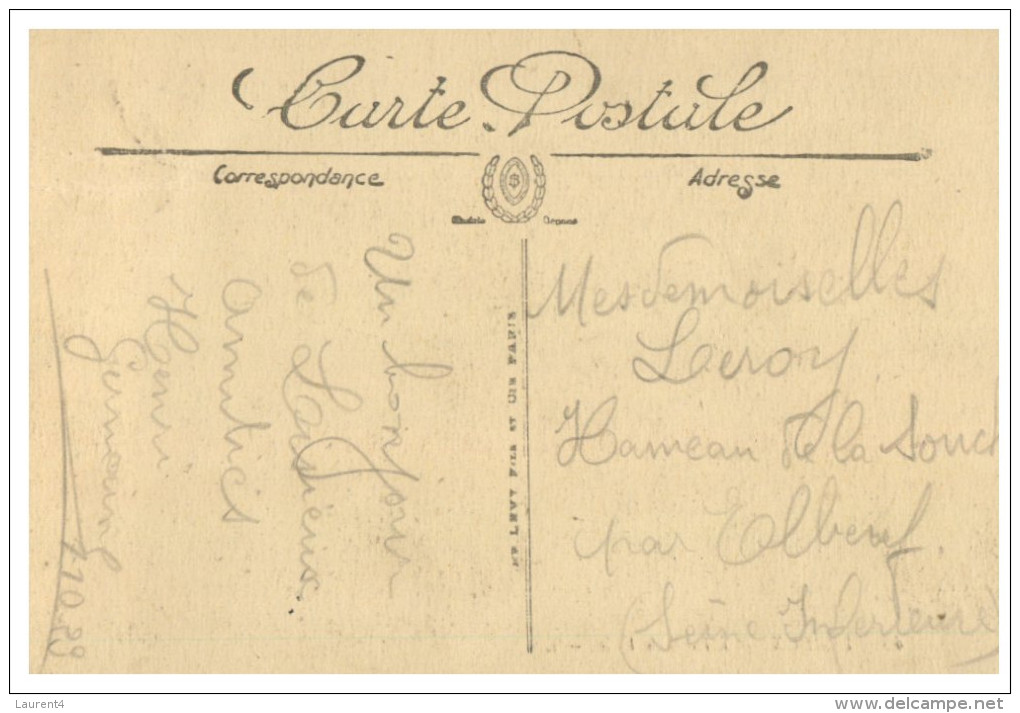 Carte Postale
Correspondance
Adresse
LEVY FILS ET CIE PARIS
Un bonjour
de Lisieux
amitiés
Henri
Germaine
Mesdemoiselles
Leroy
Hameau de la
par Elbeuf
(Seine Inférieure)
Laurent4
www.delcampe.net